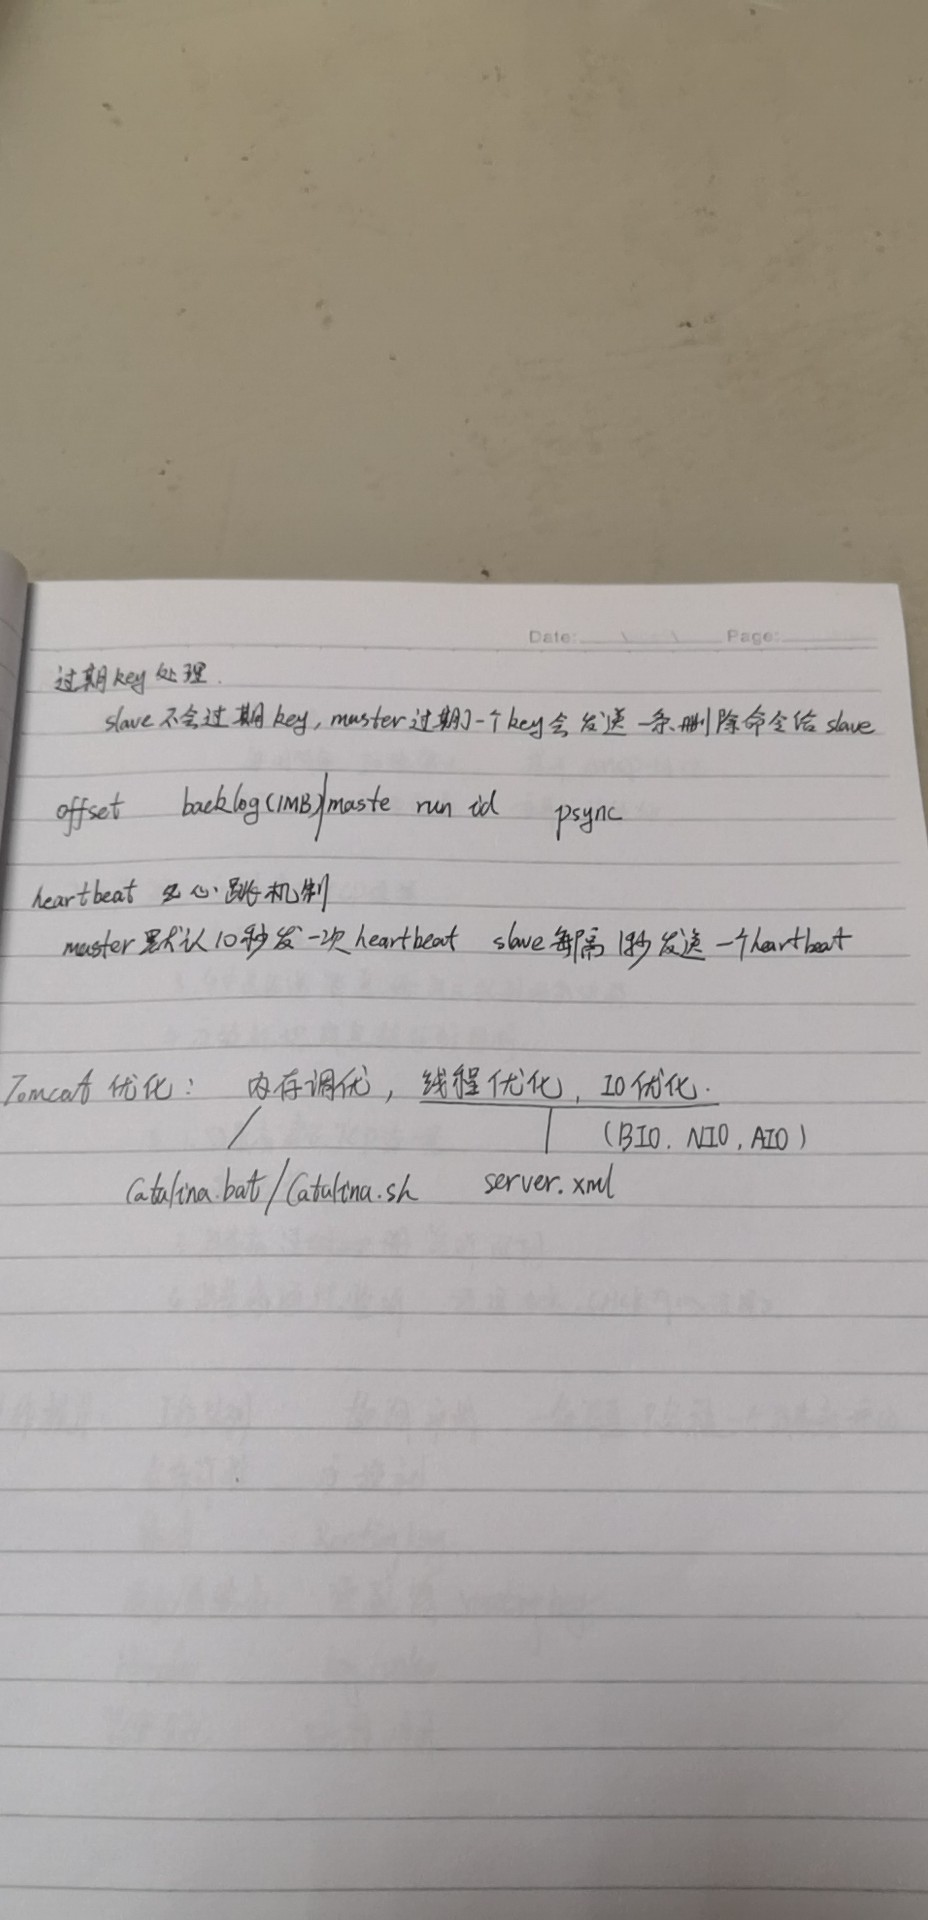 Date: Page:
过期key处理.
slave不会过期key,master过期了一个key会发送一条删除命令给slave
offset backlog(1MB) maste run id psync
heartbeat 心跳机制
master默认10秒发一次heartbeat slave每隔1秒发送一个heartbeat
Tomcat优化: 内存调优, 线程优化, IO优化.
(BIO. NIO, AIO)
Catalina.bat/Catalina.sh server.xml